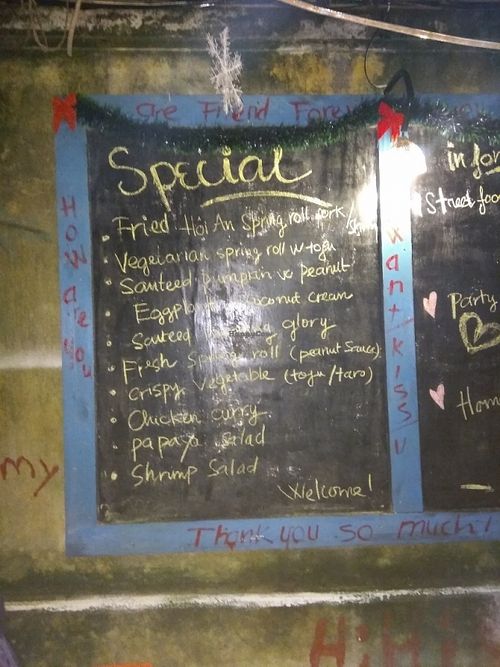 are Friend Forev
HOW are you
Special
Fried Hoi An Spring roll pork
Vegetarian spring roll w tofu
Sauteed pumpkin w peanut
Eggpl coconut cream
Sauteed glory
Fresh Spring roll (peanut Sauce)
crispy vegetable (tofu/taro)
Chicken curry
papaya salad
Shrimp Salad
Welcome!
want kiss u
Thank you so much!
infor
Street foo
Party
Hom
my